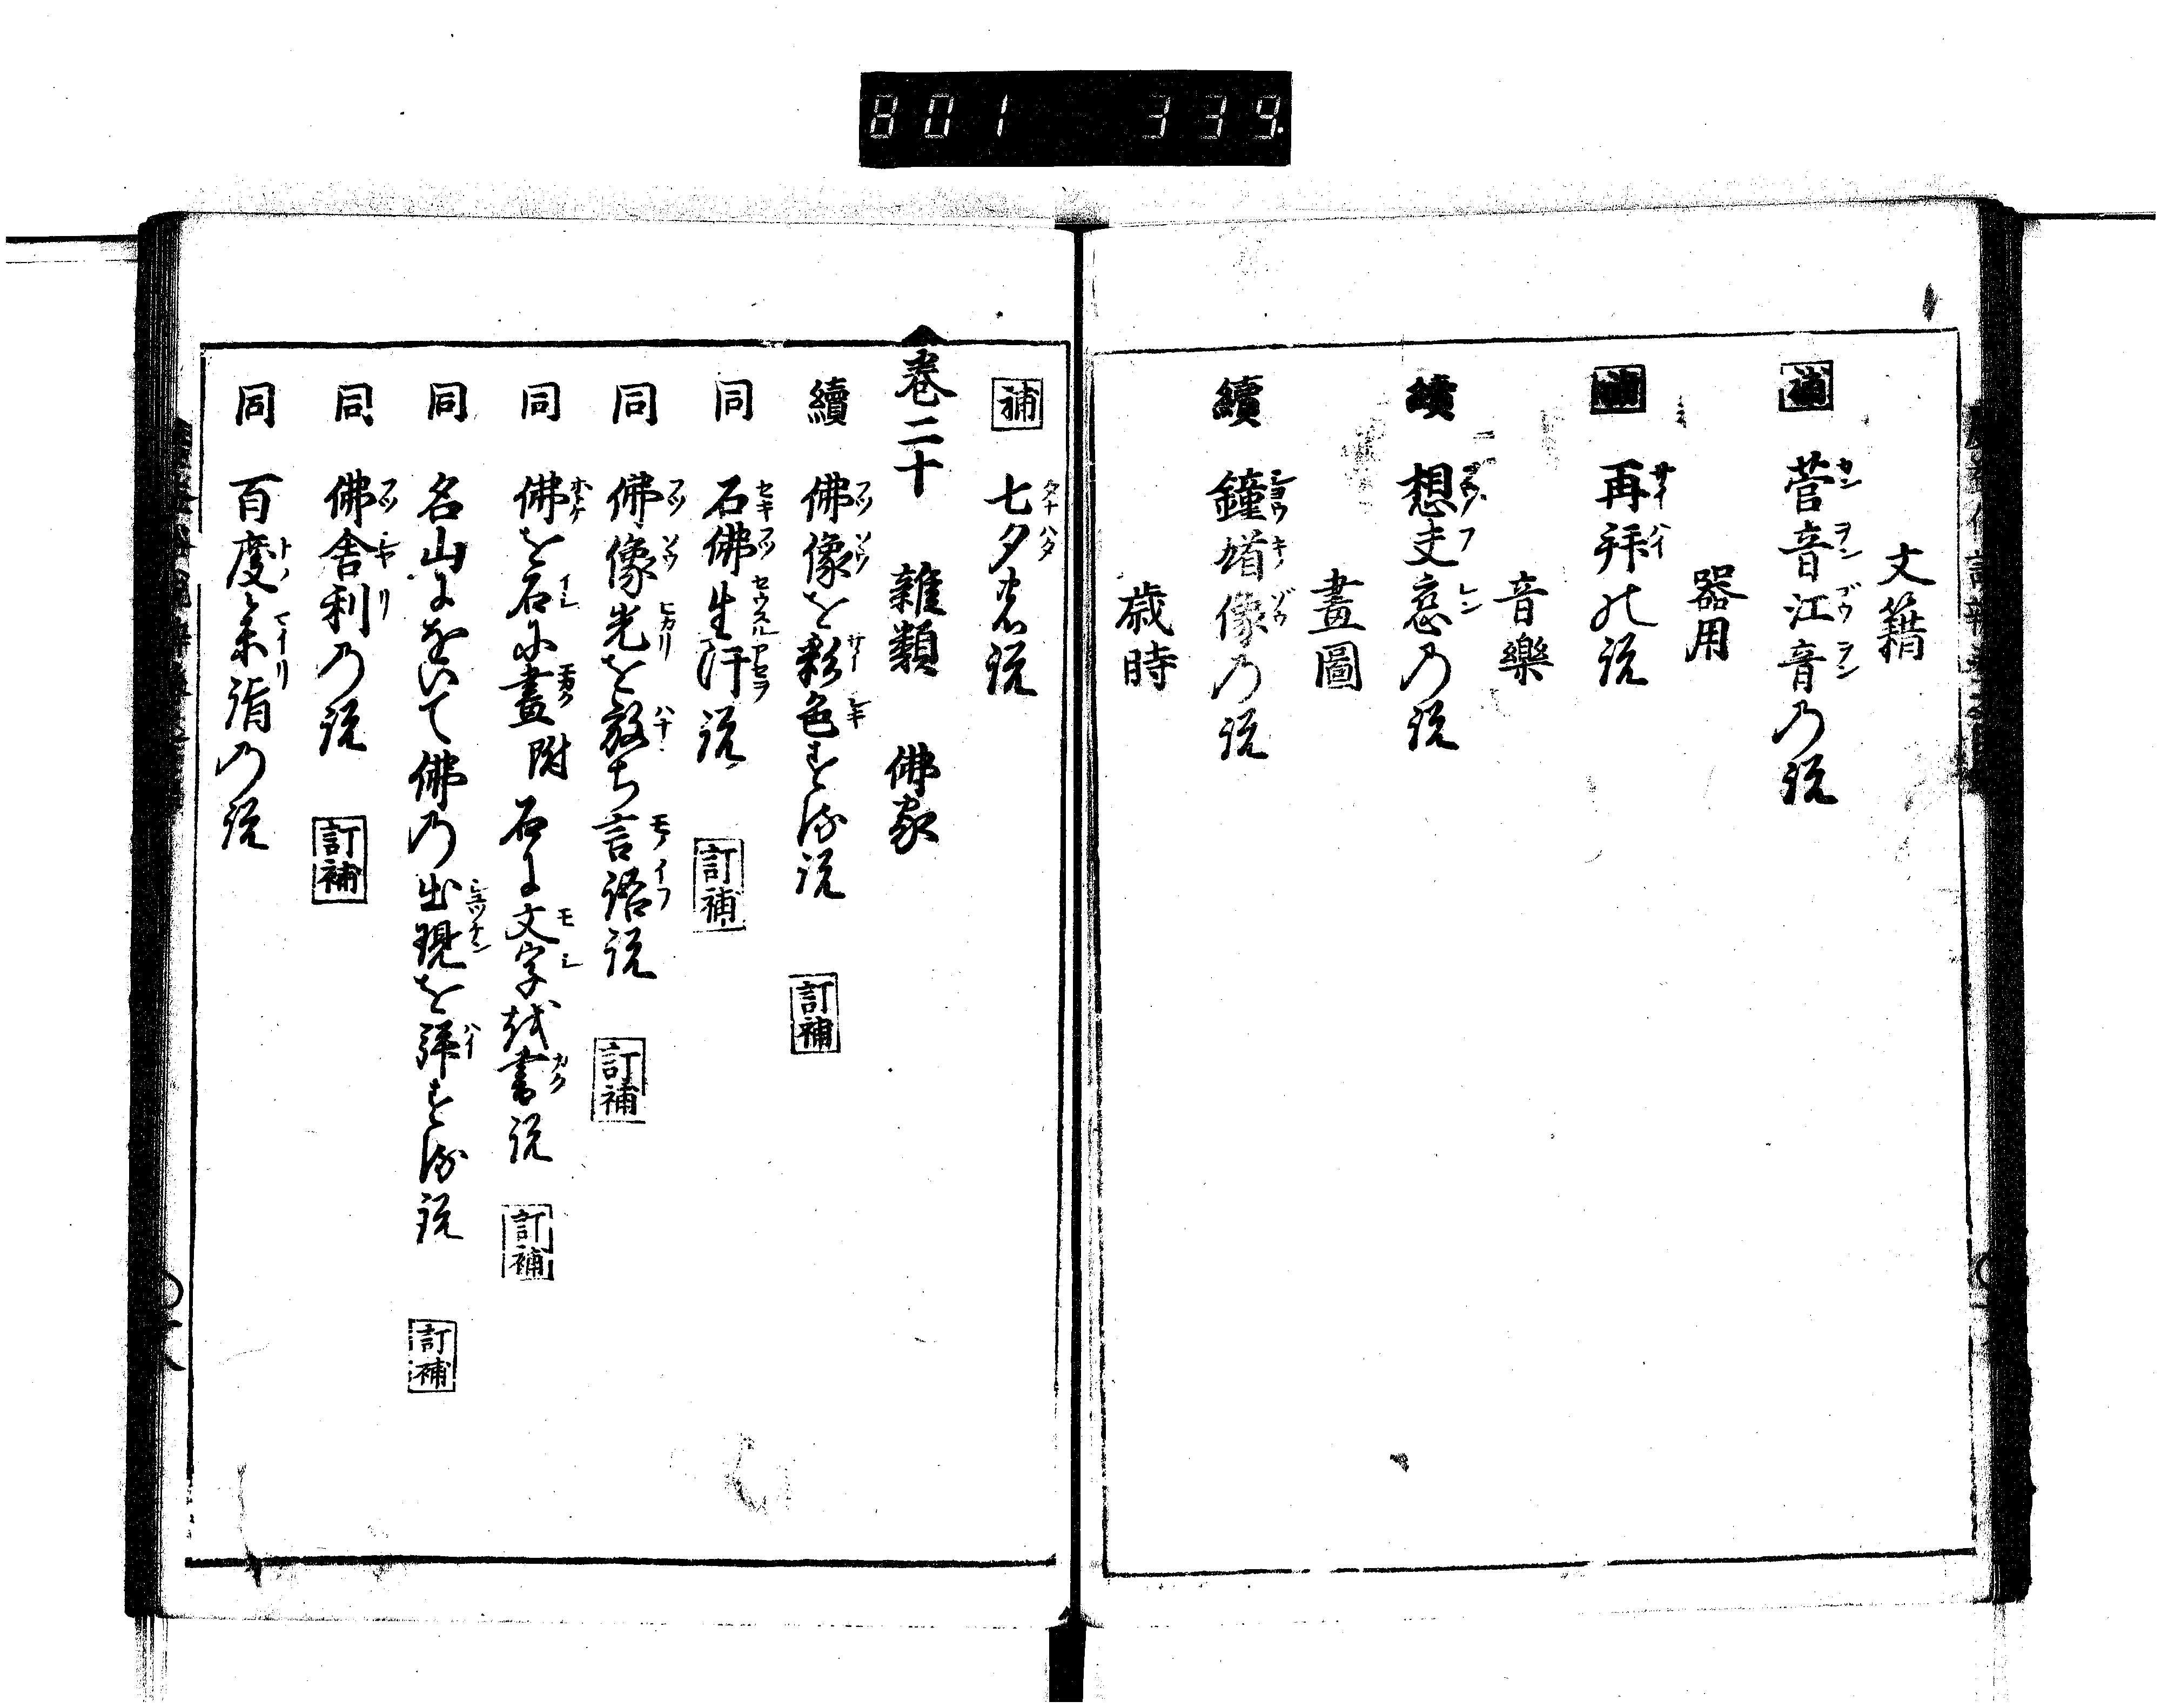 801 339
文籍
補 菅音江音乃説
器用
補 再拜の説
音樂
續 想夫恋乃説
畫圖
續 鐘馗像乃説
歳時
補 七夕の説
巻二十 雜類 佛家
續 佛像を彩色する説 訂補
同 石佛生汗説 訂補
同 佛像光を放ち言語説 訂補
同 佛を石に畫附石に文字を書説 訂補
同 名山において佛乃出現を拜する説 訂補
同 佛舎利乃説 訂補
同 百度参詣乃説